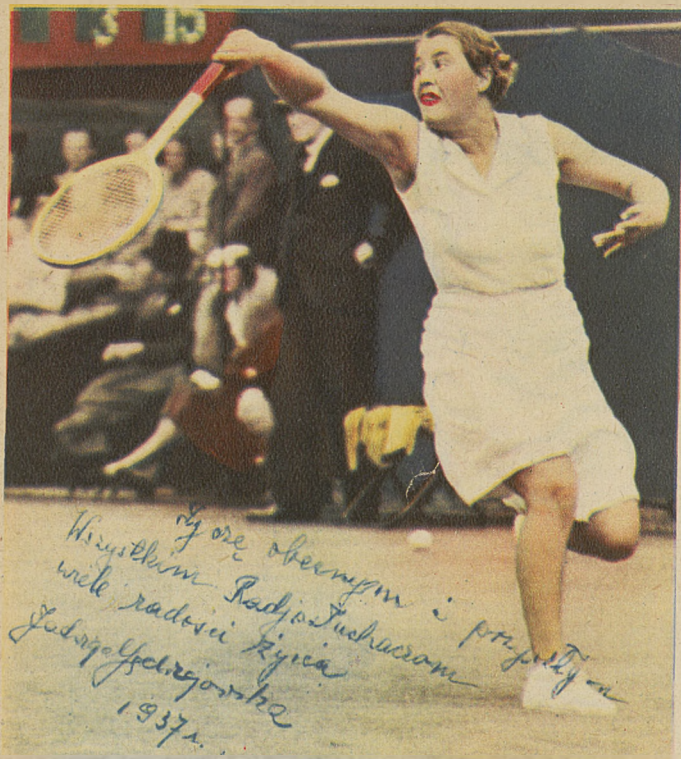 3 15
Życzę obecnym i przyszłym
Wszystkim Radjosłuchaczom
wiele radości życia
Jadwiga Jędrzejowska
1937 r.